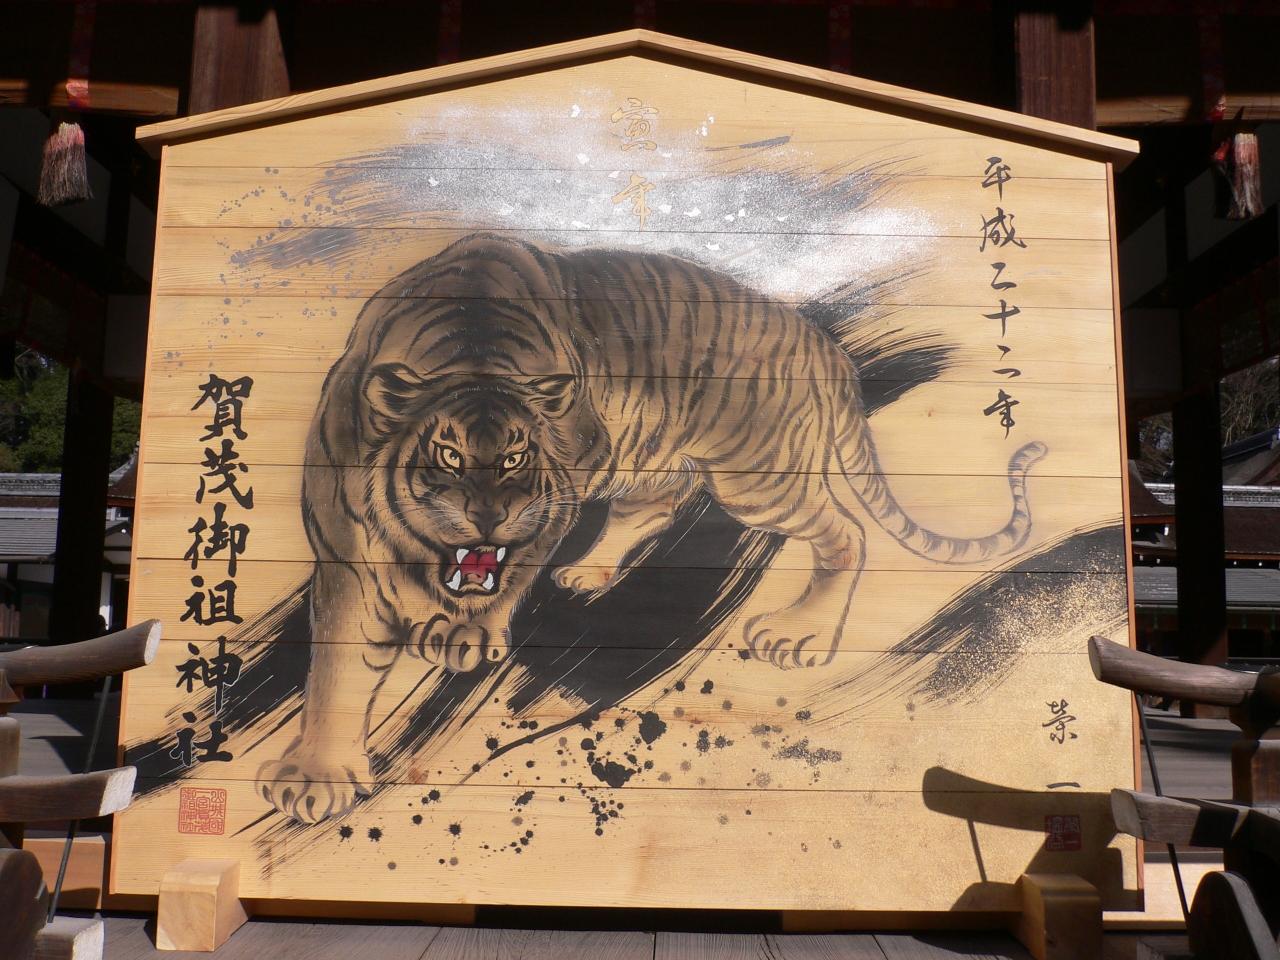 寅年
平成二十二年
賀茂御祖神社
榮一